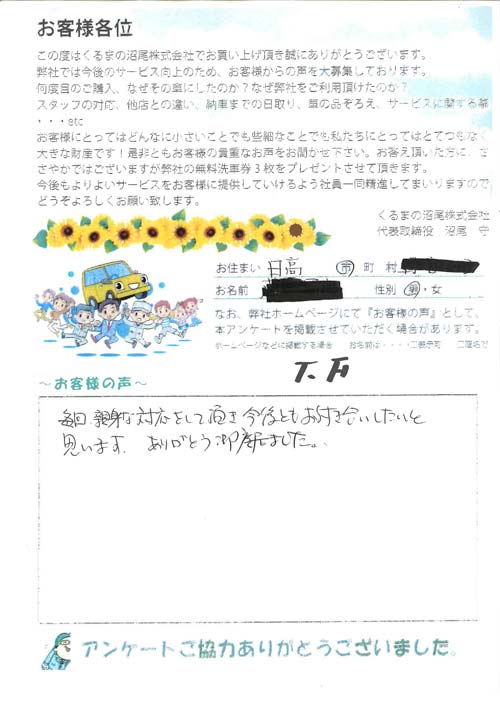 お客様各位
この度はくるまの沼尾株式会社でお買い上げ頂き誠にありがとうございます。
弊社では今後のサービス向上のため、お客様からの声を大募集しております。
何度目のご購入、なぜその車にしたのか？なぜ弊社をご利用頂けたのか？
スタッフの対応、他店との違い、納車までの日取り、車の品ぞろえ、サービスに関する事
・・・etc
お客様にとってはどんなに小さいことでも些細なことでも私たちにとってはとてつもなく
大きな財産です！是非ともお客様の貴重なお声をお聞かせ下さい。お答え頂いた方に、さ
さやかではございますが弊社の無料洗車券３枚をプレゼントさせて頂きます。
今後もよりよいサービスをお客様に提供していけるよう社員一同精進してまいりますので
どうぞよろしくお願い致します。
くるまの沼尾株式会社
代表取締役 沼尾 守
お住まい 日高 市 町 村
お名前 性別 男・女
なお、弊社ホームページにて『お客様の声』として、
本アンケートを掲載させていただく場合があります。
ホームページなどに掲載する場合 お名前は・・・・
T.H
～お客様の声～
毎回、親身な対応をして頂き今後ともお付き合いしたいと
思います。ありがとう御座いました。
アンケートご協力ありがとうございました。